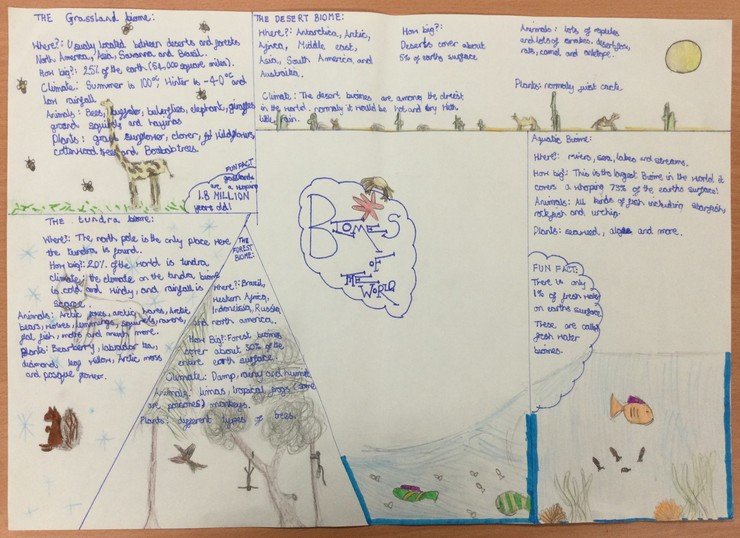 THE Grassland biome:
Where?: Usually located between deserts and forests
North America, Asia, Savanna and Brasil.
How big?: 25% of the earth (54,000 square miles).
Climate: Summer is 100°c Winter is -40°c and
low rainfall
Animals: Bees, buffalo, butterflies, elephant, giraffes
ground squirrels and
Plants: grass, sunflower, clover, wildflowers,
cottonwood trees and Boabab trees.
FUN FACT
grasslands
are a whopping
1.8 MILLION
years old!
THE DESERT BIOME:
Where?: Antarctica, Arctic,
Africa, Middle east,
Asia, South America and
Australia.
Climate: The desert biomes are among the driest
in the world. normally it would be hot and dry with
little rain.
How big?:
Deserts cover about
5% of earths surface
Animals: Lots of reptiles
and lots of snakes, desert fox,
rats, camel and antelope.
Plants: normally just cacti.
BIOMES
OF
THE
WORLD
The tundra biome:
Where?: The north pole is the only place where
the tundra is found.
How big?: 20% of the world is tundra
climate: the climate on the tundra biome
is cold and windy, and rainfall is
scarce
Animals: Arctic foxes, arctic hares, Arctic
bears, wolves, lemmings, squirrels, ravens,
fish, moths and many more
Plants: Bearberry, labrador tea,
diamond leaf willow, Arctic moss
and pasque flower.
THE
FOREST
BIOME:
Where?: Brazil,
Western Africa,
Indonesia, Russia,
and north america.
How Big?: Forest biomes
cover about 30% of the
entire earth surface.
Climate: Damp, rainy and humid
Animals: limas, tropical frogs (some
are poisonos) monkeys.
Plants: different types of trees.
Aquatic Biome:
Where?: rivers, sea, lakes and streams.
How big?: This is the largest Biome in the world it
covers a whoping 73% of the earths surface!
Animals: All kinds of fish including starfish,
rockfish and urchin.
Plants: seaweed, algae and more.
FUN FACT:
There is only
1% of fresh water
on earths surface
These are called
fresh water
biomes.